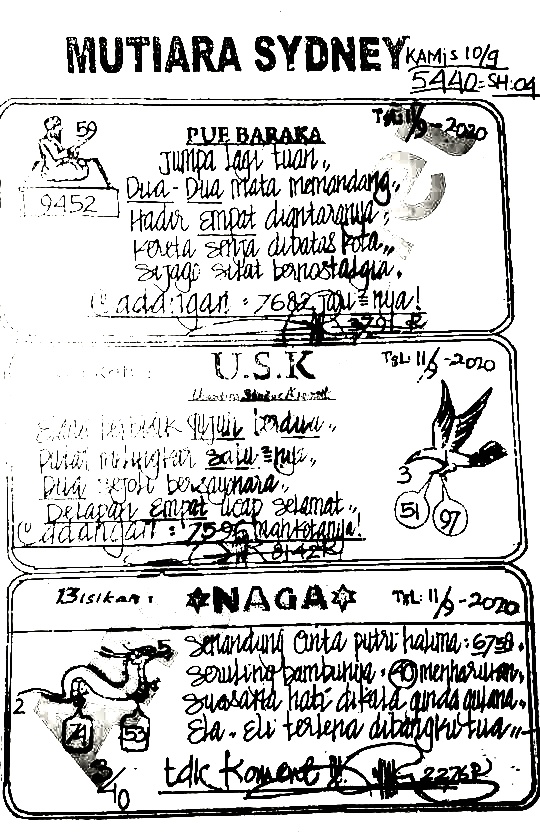 MUTIARA SYDNEY
KAMIS 10/9
5440=SH:04
59
9452
PUE BARAKA
TGL 11/9-2020
Jumpa lagi tuan,,
Dua-Dua mata memandang,,
Hadir empat diantaranya,,
Kereta senja dibatas kota,,
Sijago silat bernostalgia.
Cadangan: 7682 jari=nya!
U.S.K
TGL: 11/9-2020
berdua,,
satu=nya,,
Dua sejoli bersayhara,,
Delapan empat ucap selamat,,
Cadangan: 7596 mahkotanya!
8142R
3
51
97
Bisikan:
NAGA
TGL: 11/9-2020
Senandung cinta putri halima: 6758.
Seruling bambunya. 40
Suasana hati dikala gunda gulana.
Ela. Eli terlena dibangku tua,,
tdk Koment
2276R
2
74
53
5
8/10